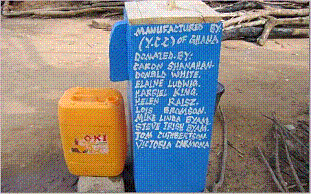 MANUFACTURED BY.
(Y.C.C) OF GHANA
DONATED BY:
CARON SHANAHAN.
DONALD WHITE.
ELAINE LUDWIG.
HARRIEL KING.
HELEN RAISZ.
LOIS BROMSON.
MIKE LINDA BYAM.
STEVE TRISH BYAM.
TOM CUTHBERTSON.
VICTORIA CARMONA
OKI